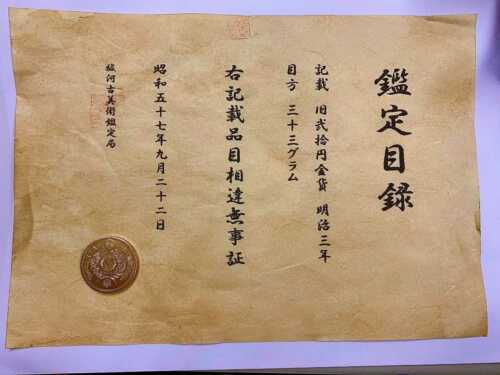 鑑定目録
記載 旧弐拾円金貨 明治三年
目方 三十三グラム
右記載品目相違無事証
昭和五十七年九月二十二日
駿河古美術鑑定局